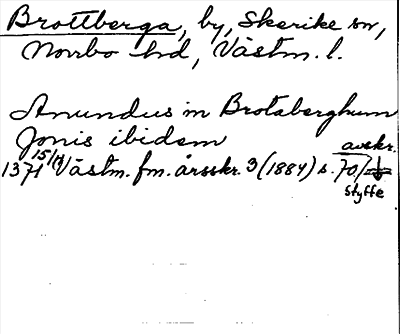 Brottberga, by, Skerike sn,
Norrbo hd, Västm. l.
Anundus in Brotaberghum
Jonis ibidem
avskr.
1371 15/11 Västm. fm. årsskr. 3 (1884) s. 70/
Styffe